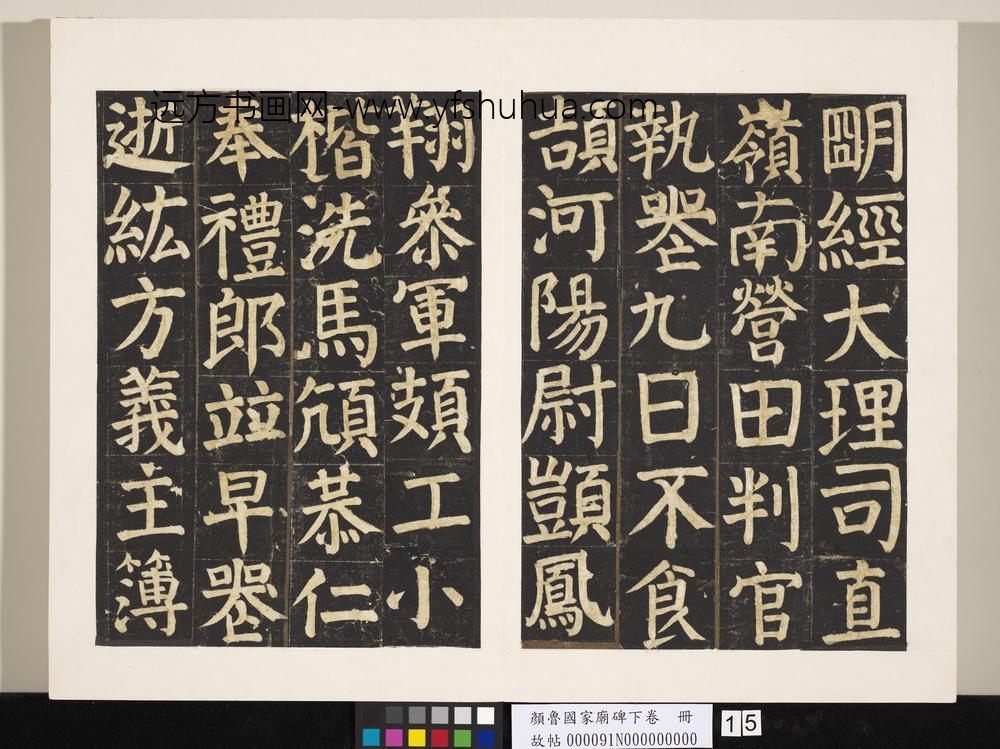 远方书画网-www.yfshuhua.com
明經大理司直
嶺南營田判官
執喪九日不食
頡河陽尉顗鳳
翔參軍頍工小
楷洗馬頎恭仁
奉禮郎竝早喪
逝紘方義主簿
顏魯國家廟碑下卷 冊
故帖 000091N000000000
15